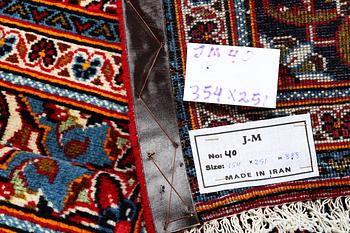 JM 40
354 x 251
J-M
No: 40
Size: 354 x 251 = 888
MADE IN IRAN